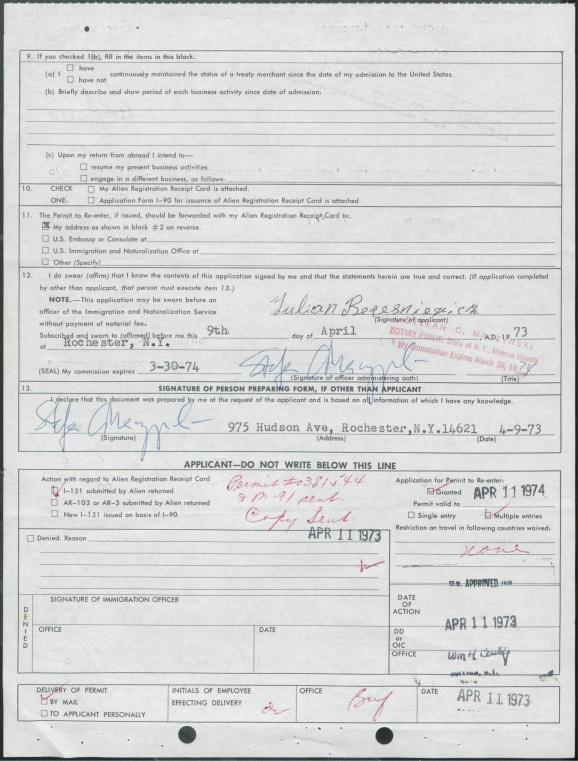 9. If you checked 1(b), fill in the items in this block.
(a) I ☐ have
☐ have not
continuously maintained the status of a treaty merchant since the date of my admission to the United States.
(b) Briefly describe and show period of each business activity since date of admission:
(c) Upon my return from abroad I intend to—
☐ resume my present business activities.
☐ engage in a different business, as follows:
10. CHECK ☐ My Alien Registration Receipt Card is attached.
ONE: ☐ Application Form I-90 for issuance of Alien Registration Receipt Card is attached.
11. The Permit to Re-enter, if issued, should be forwarded with my Alien Registration Receipt Card to:
☒ My address as shown in block #2 on reverse.
☐ U.S. Embassy or Consulate at
☐ U.S. Immigration and Naturalization Office at
☐ Other (Specify)
12. I do swear (affirm) that I know the contents of this application signed by me and that the statements herein are true and correct. (If application completed
by other than applicant, that person must execute item 13.)
NOTE.—This application may be sworn before an
officer of the Immigration and Naturalization Service
without payment of notarial fee.
Julian
(Signature of applicant)
Subscribed and sworn to (affirmed) before me this 9th day of April, A.D. 19 73
at Rochester, N.Y.
NOTARY PUBLIC, State of N.Y., Monroe County
My Commission Expires March 30, 19 74
(SEAL) My commission expires 3-30-74
(Signature of officer administering oath) (Title)
13. SIGNATURE OF PERSON PREPARING FORM, IF OTHER THAN APPLICANT
I declare that this document was prepared by me at the request of the applicant and is based on all information of which I have any knowledge.
975 Hudson Ave, Rochester,N.Y.14621 4-9-73
(Signature) (Address) (Date)
APPLICANT—DO NOT WRITE BELOW THIS LINE
Action with regard to Alien Registration Receipt Card
☑ I-151 submitted by Alien returned
☐ AR-103 or AR-3 submitted by Alien returned
☐ New I-151 issued on basis of I-90
Copy Sent.
APR 11 1973
Application for Permit to Re-enter:
☑ Granted APR 11 1974
Permit valid to
☐ Single entry ☑ Multiple entries
Restriction on travel in following countries waived:
none
☐ Denied. Reason
U.S. APPROVED INS
DENIED
SIGNATURE OF IMMIGRATION OFFICER
OFFICE DATE
DATE
OF
ACTION
APR 11 1973
DD
or
OIC
OFFICE
DELIVERY OF PERMIT
☑ BY MAIL
☐ TO APPLICANT PERSONALLY
INITIALS OF EMPLOYEE
EFFECTING DELIVERY
OFFICE
Buf
DATE APR 11 1973